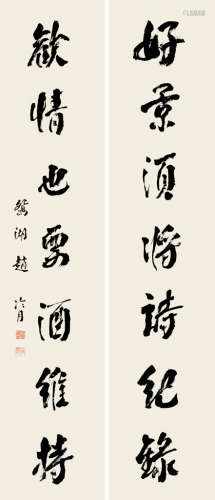 好景須將詩紀錄
歡情也要酒維持
鴛湖趙冷月